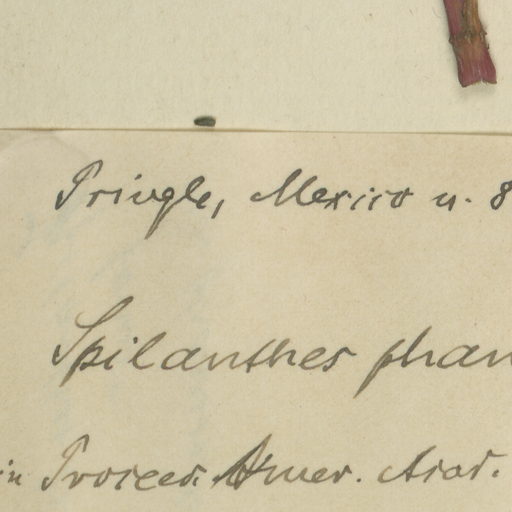 Pringle, Mexico n. 8
Spilanthes phan
in Proceed. Amer. Acad.